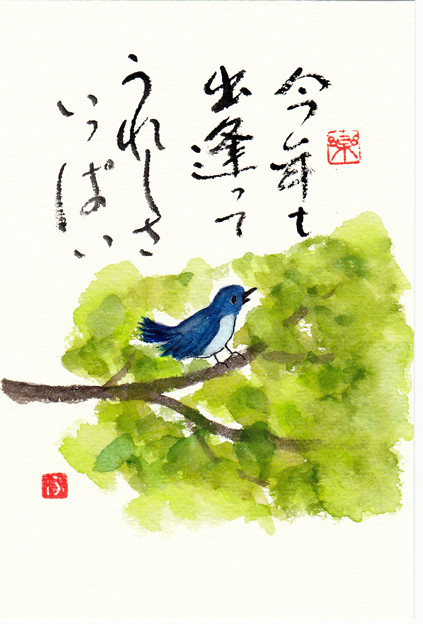 今年も
出逢って
うれしさ
いっぱい
楽